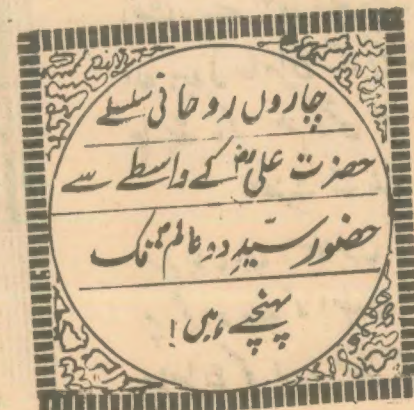 چاروں روحانی سلسلے
حضرت علیؓ کے واسطے سے
حضور سیّدِ دو عالمؐ تک
پہنچے ہیں!